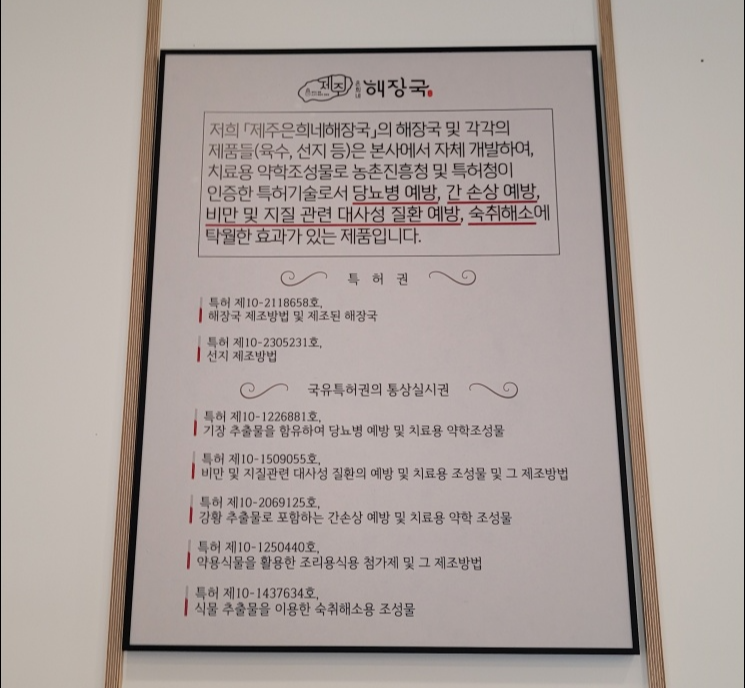 제주 은희네 해장국
저희 「제주은희네해장국」의 해장국 및 각각의
제품들(육수, 선지 등)은 본사에서 자체 개발하여,
치료용 약학조성물로 농촌진흥청 및 특허청이
인증한 특허기술로서 당뇨병 예방, 간 손상 예방,
비만 및 지질 관련 대사성 질환 예방, 숙취해소에
탁월한 효과가 있는 제품입니다.
특 허 권
특허 제10-2118658호,
해장국 제조방법 및 제조된 해장국
특허 제10-2305231호,
선지 제조방법
국유특허권의 통상실시권
특허 제10-1226881호,
기장 추출물을 함유하여 당뇨병 예방 및 치료용 약학조성물
특허 제10-1509055호,
비만 및 지질관련 대사성 질환의 예방 및 치료용 조성물 및 그 제조방법
특허 제10-2069125호,
강황 추출물로 포함하는 간손상 예방 및 치료용 약학 조성물
특허 제10-1250440호,
약용식물을 활용한 조리용식용 첨가제 및 그 제조방법
특허 제10-1437634호,
식물 추출물을 이용한 숙취해소용 조성물